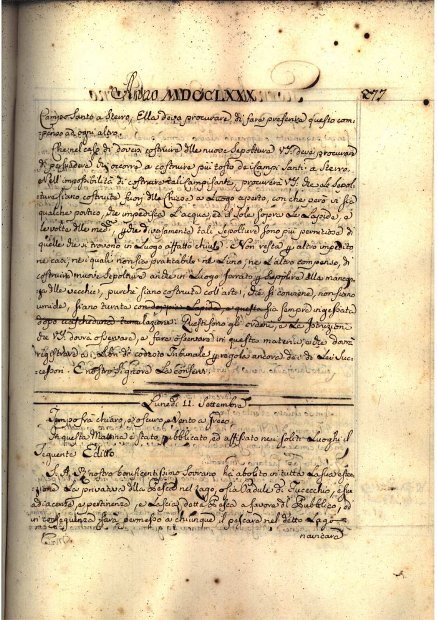 Anno MDCCLXXX. 277
Campo Santo a sterro, Ella deva procurare di farsi presenza questo com-
penso ad ogni altro.
Che nel caso di doversi costruire delle nuove Sepolture VS. deve procurar
di persuadere di ricorrere a costruire più tosto de i Campi Santi a Sterro.
Nell'impossibilità di costruire tali Campi santi, procurerà VS. che le Sepol-
ture siano costruite fuori delle Chiese a Luogo aperto, con che però vi sia
qualche portico, che impedisca l'acqua, ed il Sole sopra le Lapide, e
le volte delle med.e, poichè diversamente tali sepolture sono più perniciose di
quelle che si trovano in Luogo affatto chiuso. E Non resta
ne casi, ne i quali non sia praticabile nè l'uno, nè l'altro compenso, di
costruire nuove Sepolture anche in Luogo serrato
delle vecchie, purchè siano costruite coll'arte, che si conviene, non siano
umide, siano sia sempre ingessata
dopo ciascheduna tumulazione. Questi sono gli ordini, e le Istruzioni
che VS. dovrà osservare, e fare osservare in questa materia, e che dovrà
registrare a i Libri di codesto Tribunale p. regola ancora de i di Lei Suc-
cessori. E nostro Signore La conservi.
Lunedi 11. Settembre
Tempo frà chiaro, e oscuro, e vento a
In questa Mattina è stato pubblicato ed affissato nei soliti Luoghi il
seguente Editto.
S. A. R. Il nostro beneficentissimo Sovrano ha abolito in tutta la sua esten-
sione la privativa della Pesca nel Lago, o sia Padule di Fucecchio, e sue
adiacenze, e pertinenze, e Lascia detta Pesca a favore del Pubblico, ed
in conseguenza sarà permesso a chiunque il pescare nel detto Lago
navicare